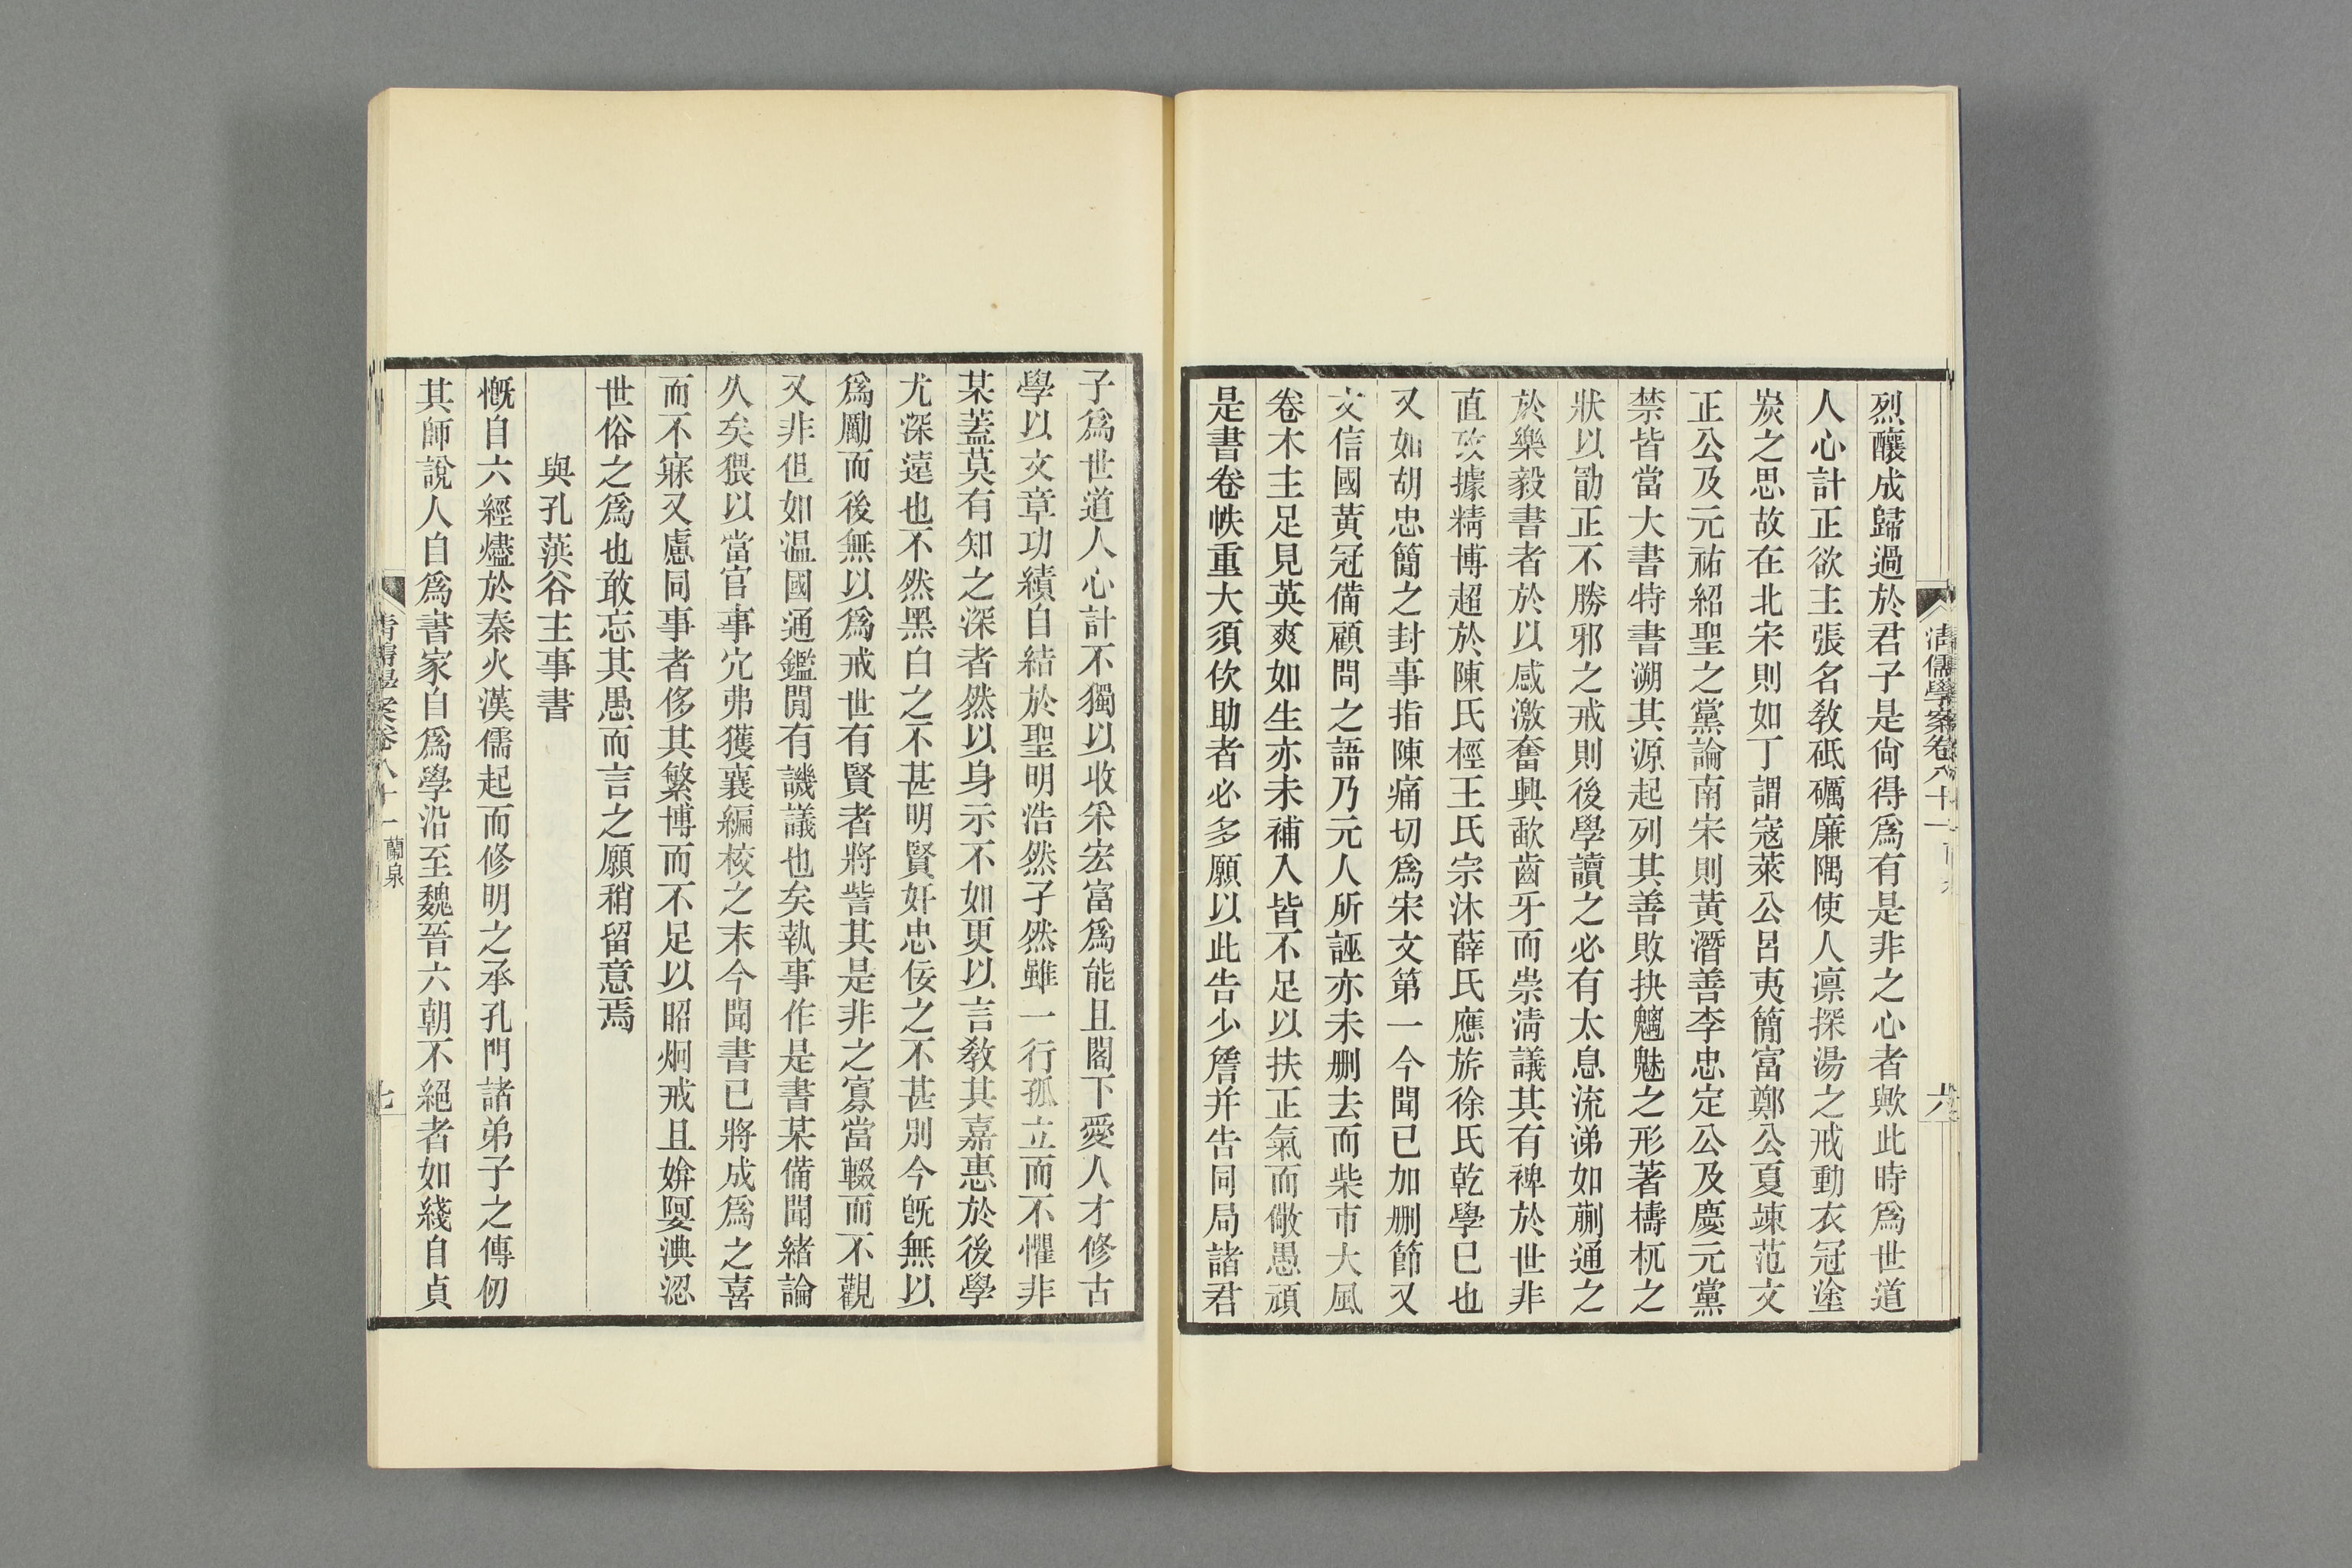 清儒學案卷八十一
六
烈釀成歸過於君子是尙得爲有是非之心者歟此時爲世道
人心計正欲主張名敎砥礪廉隅使人凛探湯之戒動衣冠塗
炭之思故在北宋則如丁謂寇萊公呂夷簡富鄭公夏竦范文
正公及元祐紹聖之黨論南宋則黃潛善李忠定公及慶元黨
禁皆當大書特書溯其源起列其善敗抉魑魅之形著檮杌之
狀以勖正不勝邪之戒則後學讀之必有太息流涕如蒯通之
於樂毅書者於以感激奮興齗齒牙而崇淸議其有裨於世非
直攷據精博超於陳氏桱王氏宗沐薛氏應旂徐氏乾學已也
又如胡忠簡之封事指陳痛切爲宋文第一今聞已加刪節又
文信國黃冠備顧問之語乃元人所誣亦未刪去而柴市大風
卷木主足見英爽如生亦未補入皆不足以扶正氣而儆愚頑
是書卷帙重大須佽助者必多願以此告少詹并告同局諸君
子爲世道人心計不獨以收采宏富爲能且閣下愛人才修古
學以文章功績自結於聖明浩然孑然雖一行孤立而不懼非
某蓋莫有知之深者然以身示不如更以言敎其嘉惠於後學
尤深遠也不然黑白之不甚明賢奸忠佞之不甚別今旣無以
爲勵而後無以爲戒世有賢者將訾其是非之寡當輟而不觀
又非但如溫國通鑑閒有譏議也矣執事作是書某備聞緖論
久矣猥以當官事冗弗獲襄編校之末今聞書已將成爲之喜
而不寐又慮同事者侈其繁博而不足以昭炯戒且媕娿淟涊
世俗之爲也敢忘其愚而言之願稍留意焉
與孔葓谷主事書
慨自六經燼於秦火漢儒起而修明之承孔門諸弟子之傳仞
其師說人自爲書家自爲學沿至魏晉六朝不絕者如綫自貞
清儒學案卷八十一
蘭泉
七